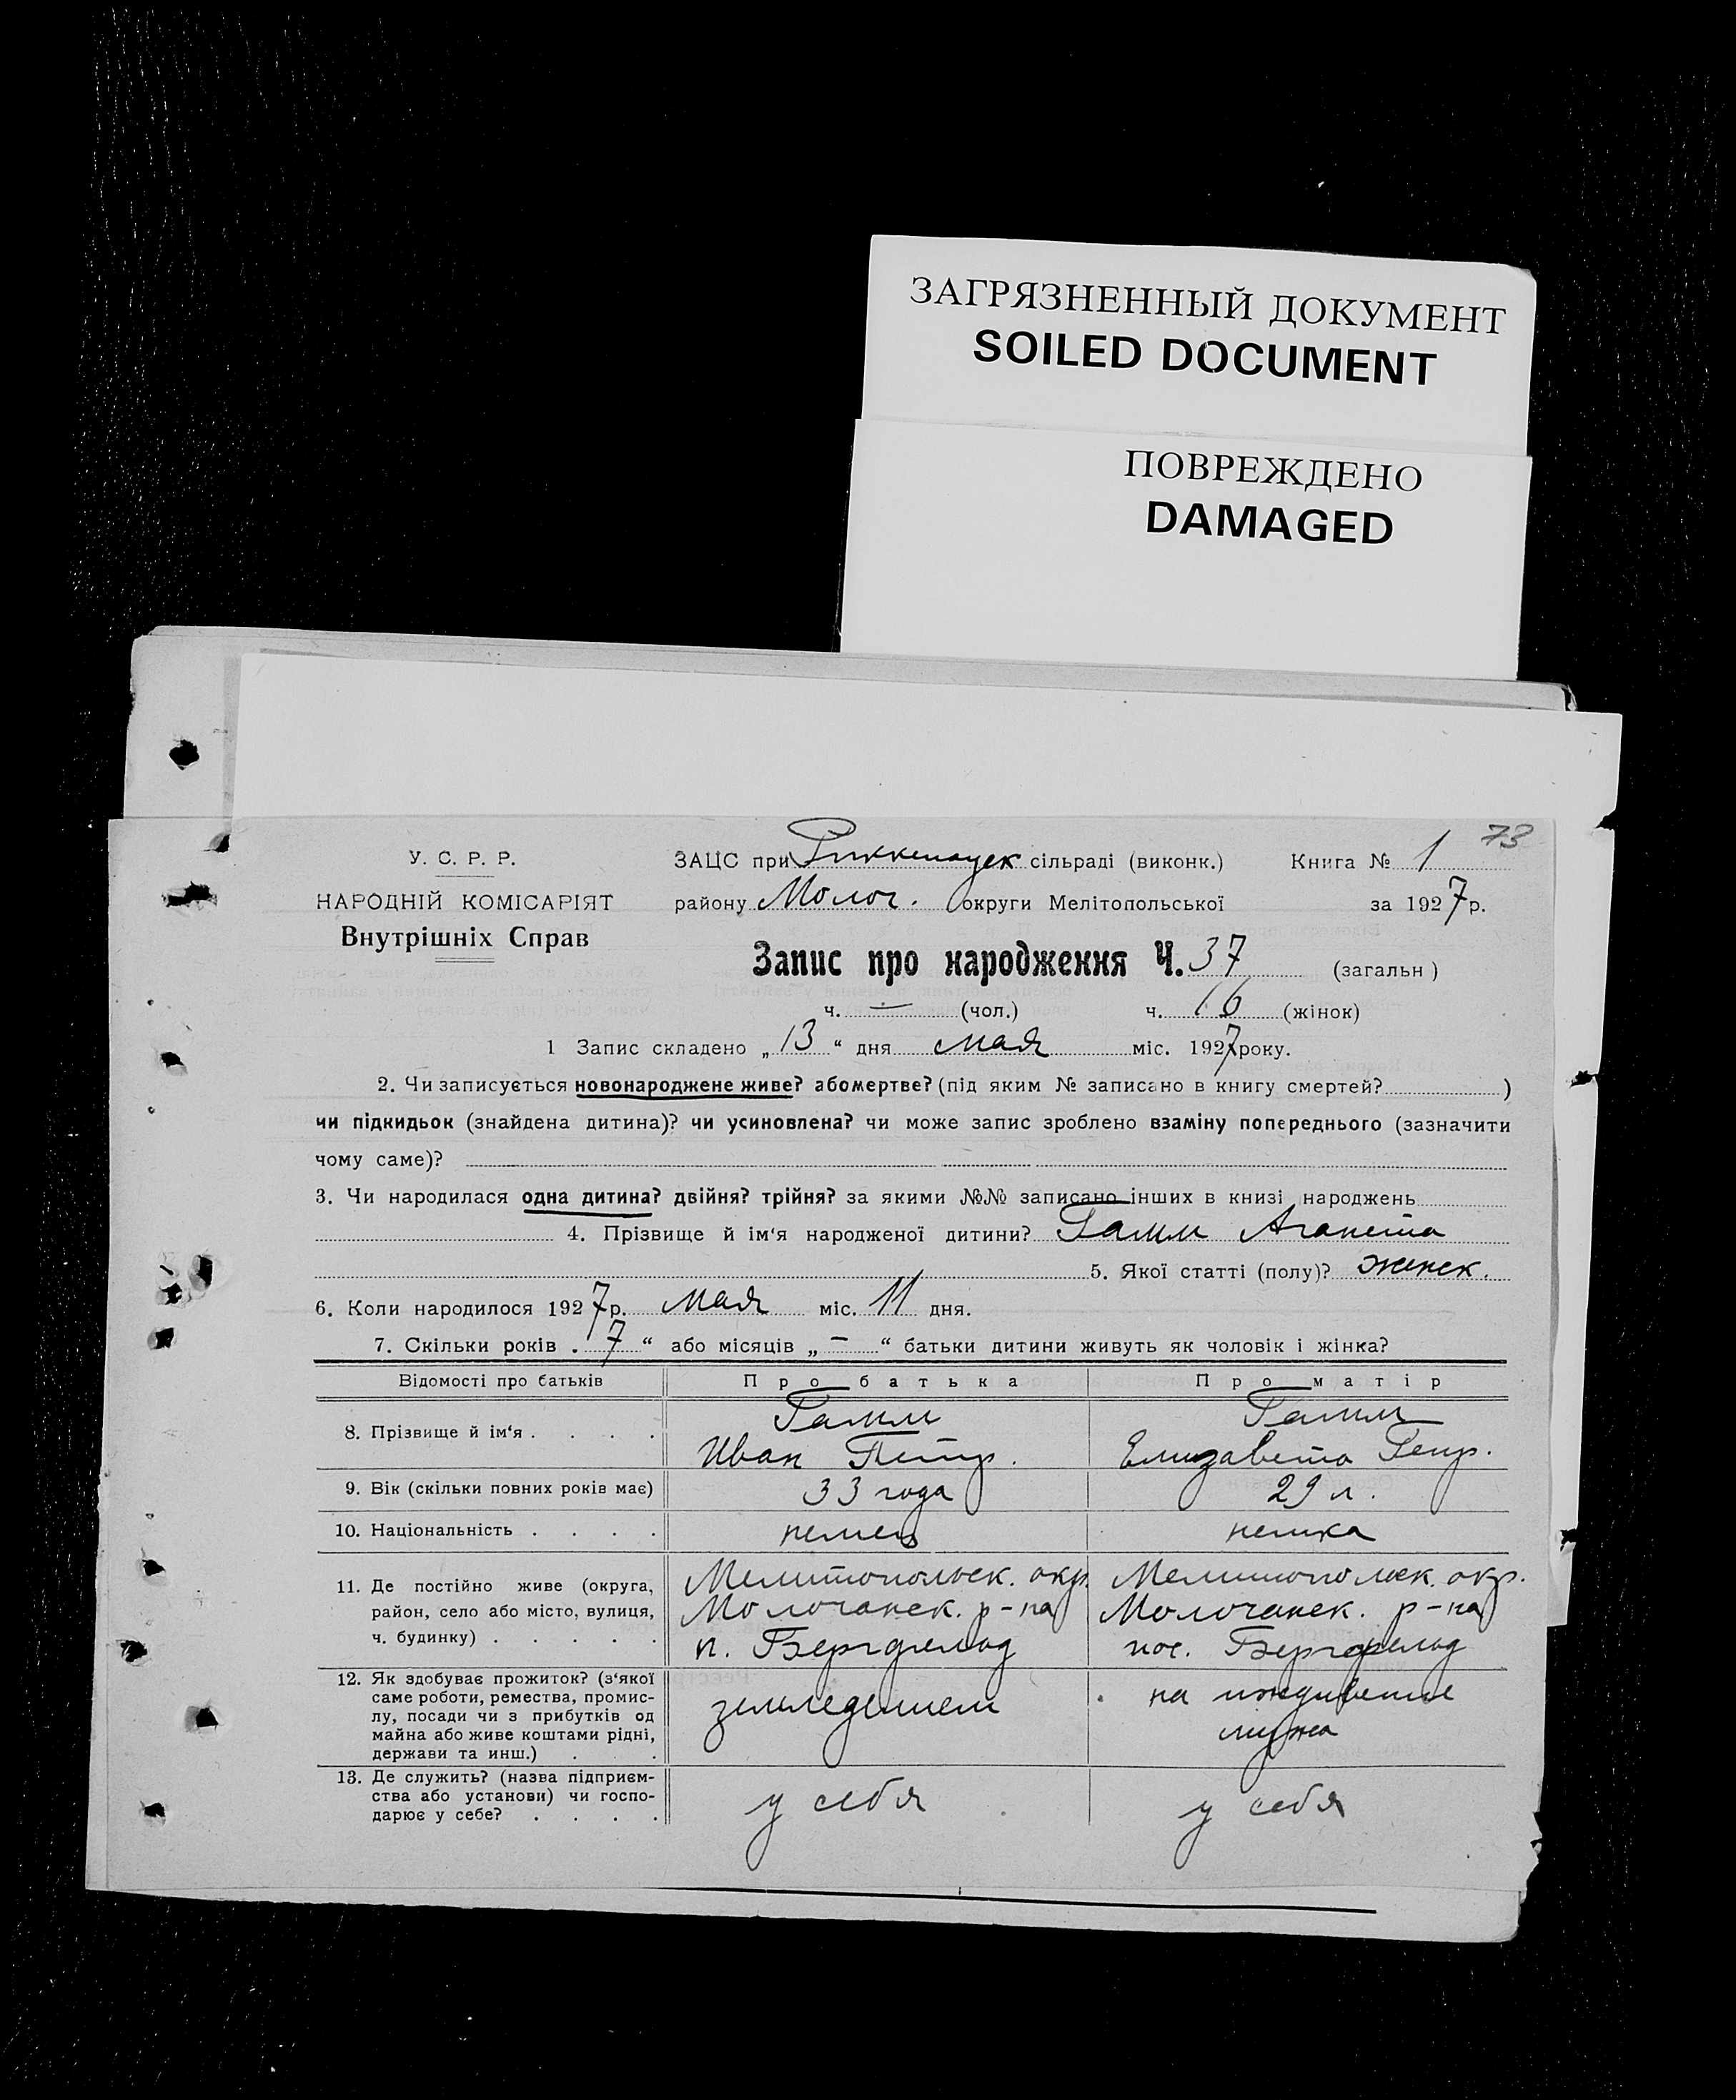 ЗАГРЯЗНЕННЫЙ ДОКУМЕНТ
SOILED DOCUMENT
ПОВРЕЖДЕНО
DAMAGED
73
У. С. Р. Р.
НАРОДНІЙ КОМІСАРІЯТ
Внутрішніх Справ
ЗАЦС при сільраді (виконк.) Книга № 1
району Молоч. округи Мелітопольської за 1927 р.
Запис про народження Ч. 37 (загальн)
ч. — (чол.) ч. 16 (жінок)
1 Запис складено „13“ дня мая міс. 1927 року.
2. Чи записується новонароджене живе? або мертве? (під яким № записано в книгу смертей? )
чи підкидьок (знайдена дитина)? чи усиновлена? чи може запис зроблено взаміну попереднього (зазначити
чому саме)?
3. Чи народилася одна дитина? двійня? трійня? за якими №№ записано інших в книзі народжень
4. Прізвище й ім‘я народженої дитини? Гамм Аганета
5. Якої статті (полу)? женск.
6. Коли народилося 1927 р. мая міс. 11 дня.
7. Скільки років . 7 “ або місяців „ – “ батьки дитини живуть як чоловік і жінка?
Відомості про батьків Про батька Про матір
8. Прізвище й ім‘я . . . . Гамм Гамм
Иван Петр. Елизавета Генр.
9. Вік (скільки повних років має) 33 года 29 л.
10. Національність . . . . немец немка
11. Де постійно живе (округа, Мелитопольск. окр. Мелитопольск. окр.
район, село або місто, вулиця, Молочанск. р-на Молочанск. р-на
ч. будинку) . . . . . п. Бергфельд пос. Бергфельд
12. Як здобуває прожиток? (з‘якої
саме роботи, ремества, промис- земледелием на иждивении
лу, посади чи з прибутків од мужа
майна або живе коштами рідні,
держави та инш.) . .
13. Де служить? (назва підприєм-
ства або установи) чи госпо- у себя у себя
дарює у себе? . . . .